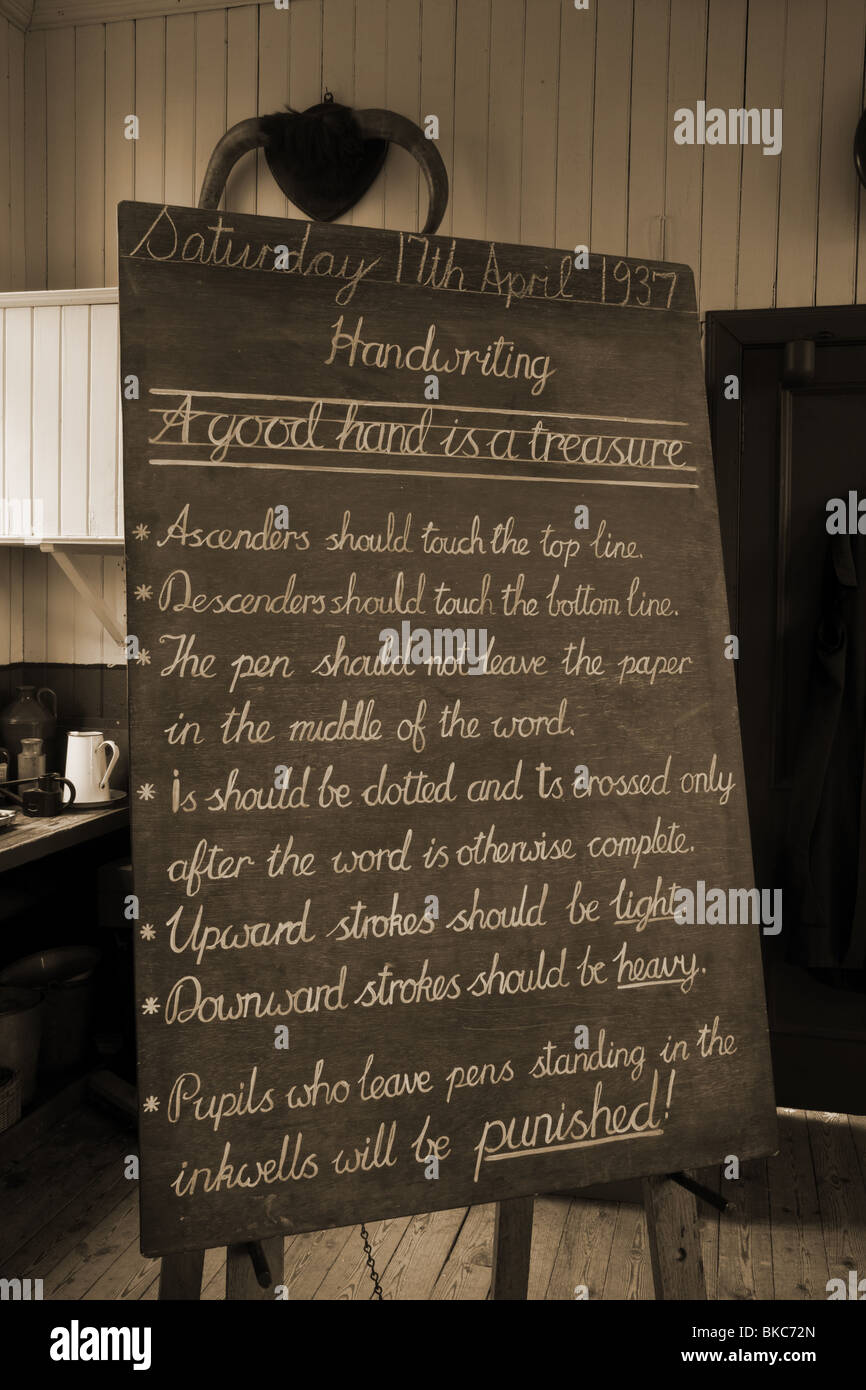 Saturday 17th April 1937
Handwriting
A good hand is a treasure
* Ascenders should touch the top line.
* Descenders should touch the bottom line.
* The pen should not leave the paper
in the middle of the word.
* is should be dotted and ts crossed only
after the word is otherwise complete.
* Upward strokes should be light.
* Downward strokes should be heavy.
* Pupils who leave pens standing in the
inkwells will be punished!
alamy
alamy
Image ID: BKC72N
www.alamy.com